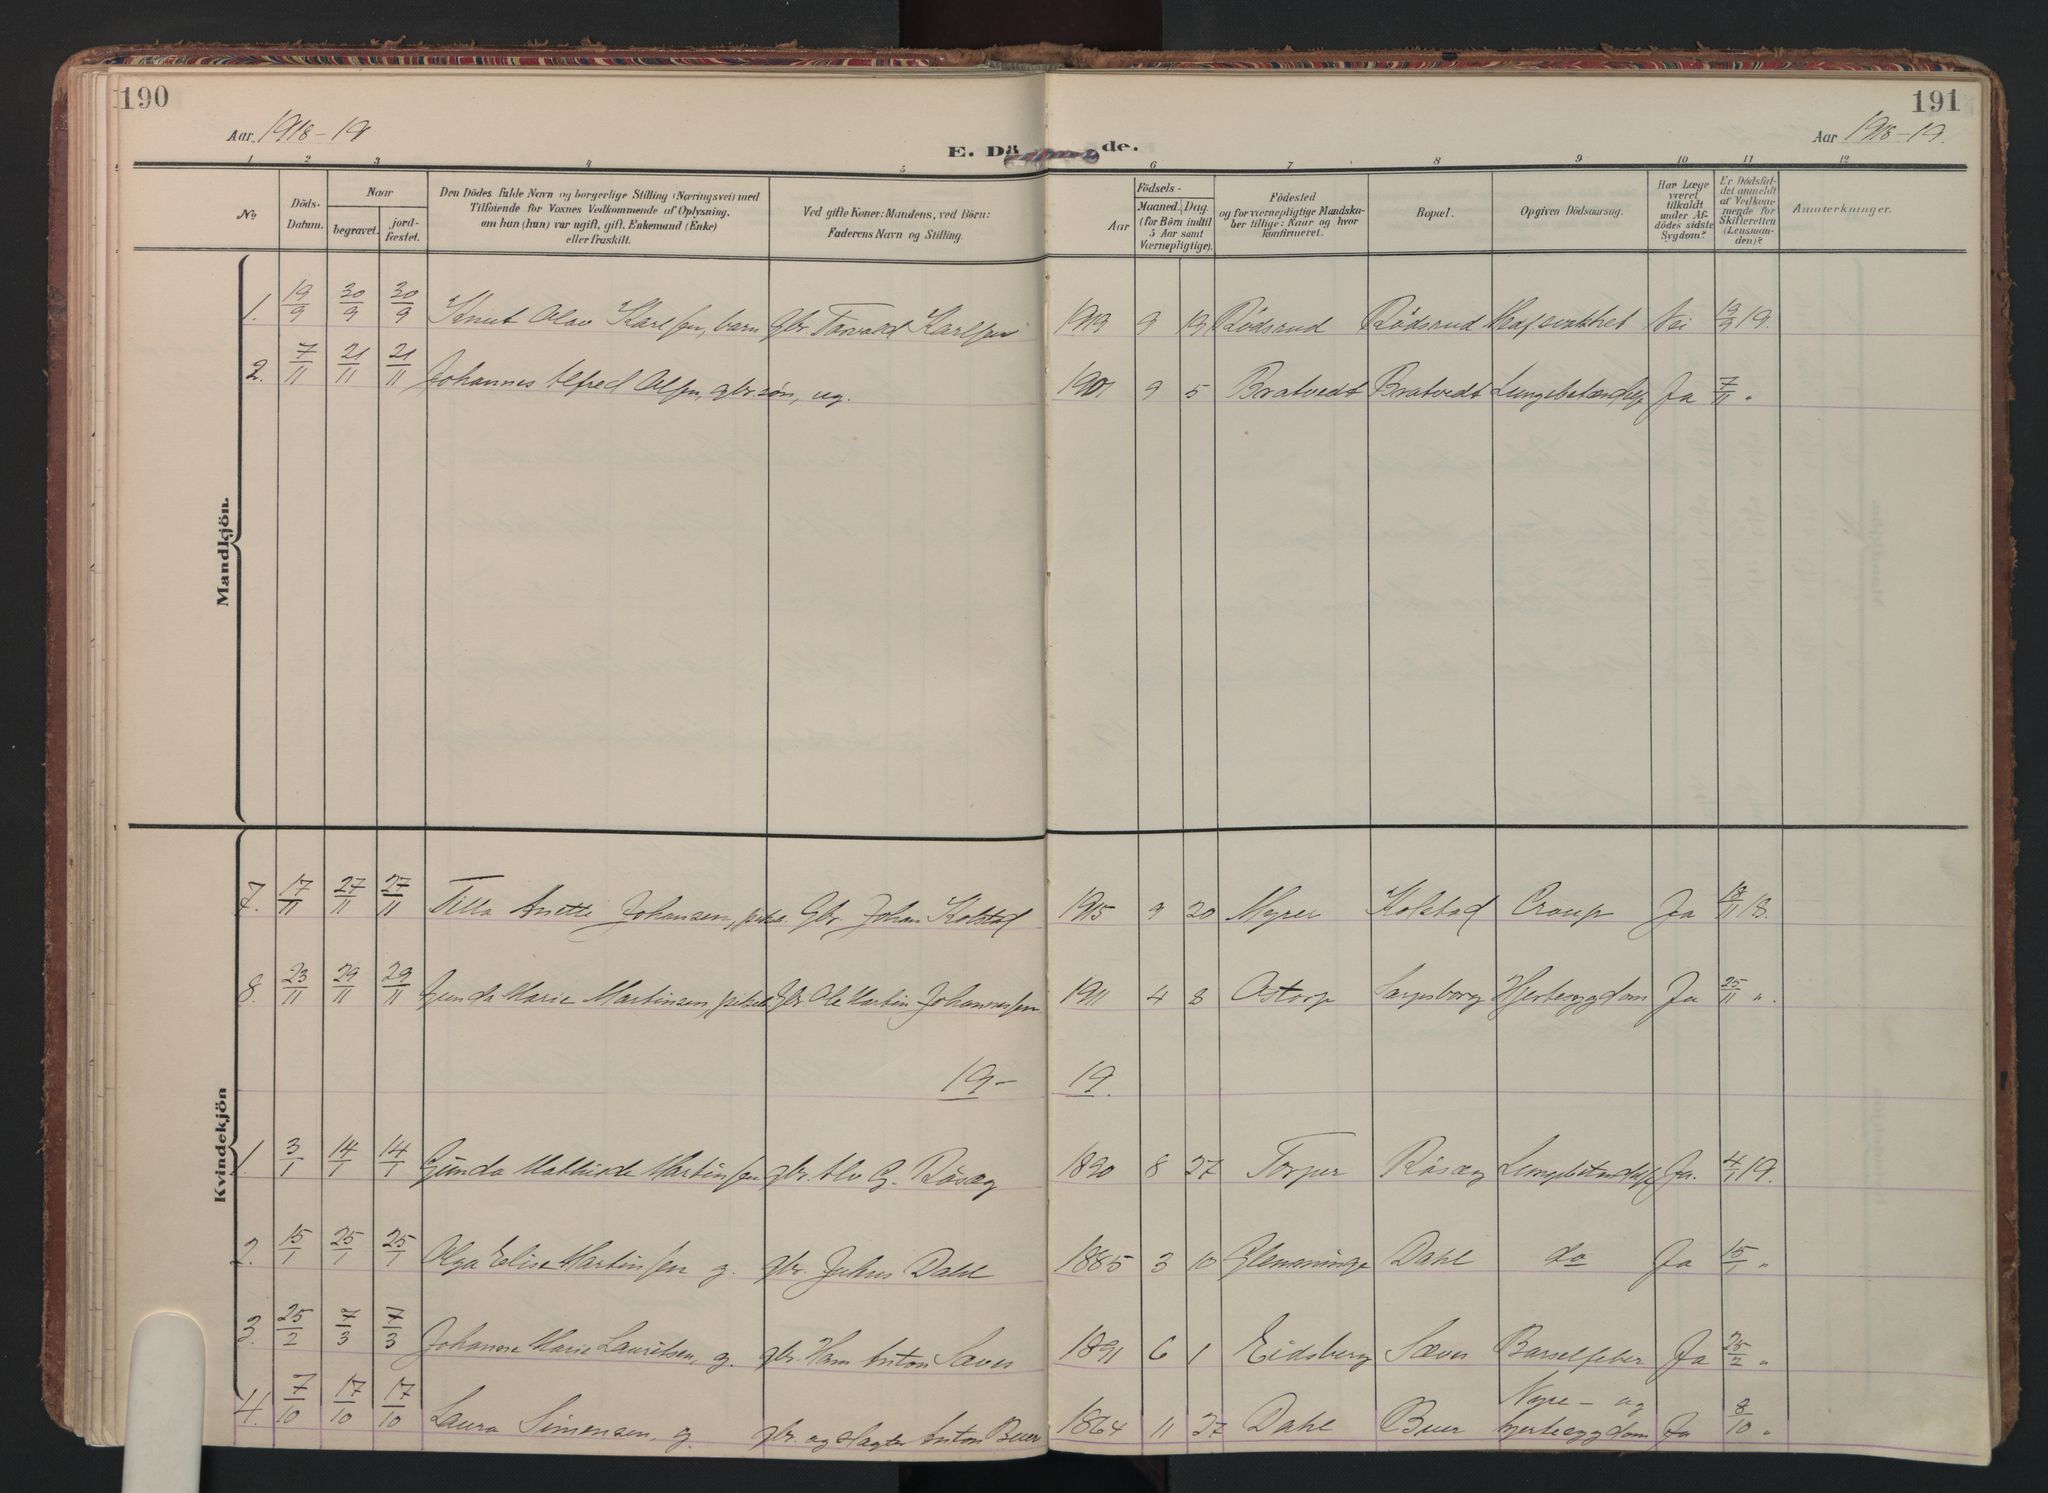 190
191
Aar 1918-19
Aar 1918-19.
E. Dö de.
1 2 3 4 5 6 7 8 9 10 11 12
No
Döds-Datum.
Naar
begravet.
jord-fæstet.
Den Dödes fulde Navn og borgerlige Stilling (Næringsvei) med
Tilföiende for Voxnes Vedkommende af Oplysning,
om han (hun) var ugift, gift, Enkemand (Enke)
eller fraskilt.
Ved gifte Koner: Mandens, ved Börn:
Faderens Navn og Stilling.
Födsels-
Aar
Maaned. Dag
(for Börn indtil
5 Aar samt
Værnepligtige).
Födested
og for værnepligtige Mandska-
ber tillige: Naar og hvor
konfirmeret.
Bopæl.
Opgiven Dödsaarsag.
Har Læge
været
tilkaldt
under Af-
dödes sidste
Sygdom?
Er Dödsfal-
det anmeldt
af Vedkom-
mende for
Skifteretten
(Lensman-
den)?
Anmærkninger.
Mandkjön.
1. 19/9 30/9 30/9 Knut Olav Karlsen, barn Gbr. Karlsen 1919 9 19 Rödsrud Rödsrud Nei 19/9 19.
2. 7/11 21/11 21/11 Johannes Alfred Olsen, gbr.sön, ug. 1901 9 5 Bratvedt Bratvedt Lungebetændelse Ja 7/11 "
Kvindekjön
7. 17/11 27/11 27/11 Tilla Anette Johansen, pike Gbr. Johan Kolstad 1915 9 20 Myrer Kolstad Croup Ja 18/11 18.
8. 23/11 29/11 29/11 Gunda Marie Martinsen, pike Gbr. Ole Martin Johannessen 1911 4 8 Ostorp Sarpsborg Hjertesygdom Ja 25/11 ".
19- 19.
1. 3/1 14/1 14/1 Gunda Mathilde Martinsen gbr. Alv G. Röseg 1890 8 27 Torper Röseg Lungebetændelse Ja. 4/1 19.
2. 15/1 25/1 25/1 Olga Elise Martinsen g. gbr. Julius Dahl 1885 3 10 Glemminge Dahl do Ja 15/1 "
3. 25/2 7/3 7/3 Johanne Marie Lauritsen, g. gbr. Hans Anton Sæves 1891 6 1 Eidsberg Sæves Barselfeber Ja 25/2 "
4. 7/10 17/10 17/10 Laura Simensen, g. gbr. og slagter Anton Buer 1864 11 27 Dahl Buer Nyre- og hjertesygdom Ja 8/10 "